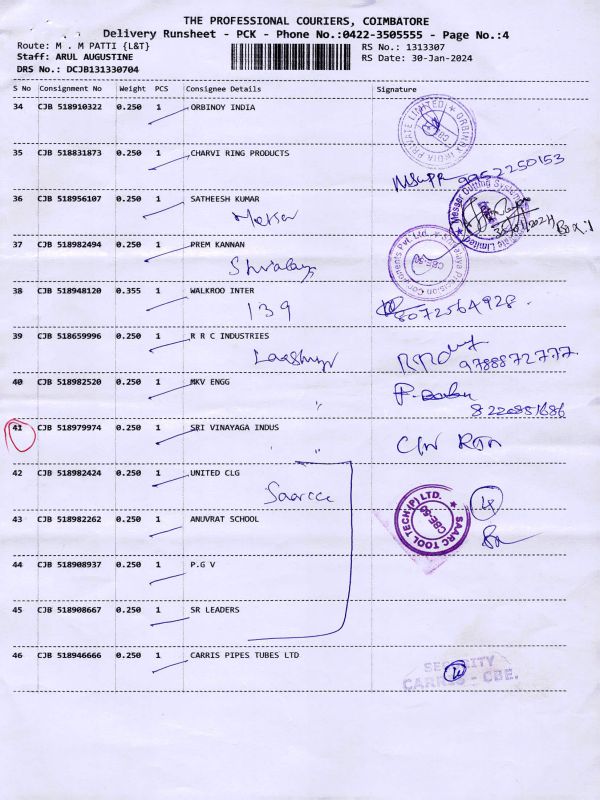 THE PROFESSIONAL COURIERS, COIMBATORE
Delivery Runsheet - PCK - Phone No.:0422-3505555 - Page No.:4
Route: M . M PATTI {L&T}
RS No.: 1313307
Staff: ARUL AUGUSTINE
RS Date: 30-Jan-2024
DRS No.: DCJB131330704
S No Consignment No Weight PCS Consignee Details Signature
34 CJB 518910322 0.250 1 ORBINOY INDIA
35 CJB 518831873 0.250 1 CHARVI RING PRODUCTS
9952250153
36 CJB 518956107 0.250 1 SATHEESH KUMAR
37 CJB 518982494 0.250 1 PREM KANNAN
38 CJB 518948120 0.355 1 WALKROO INTER
139
8072564928
39 CJB 518659996 0.250 1 R R C INDUSTRIES
9788872777
40 CJB 518982520 0.250 1 MKV ENGG
8220851686
41 CJB 518979974 0.250 1 SRI VINAYAGA INDUS
42 CJB 518982424 0.250 1 UNITED CLG
SAARC TOOL TECH (P) LTD.
CBE-59
43 CJB 518982262 0.250 1 ANUVRAT SCHOOL
44 CJB 518908937 0.250 1 P.G V
45 CJB 518908667 0.250 1 SR LEADERS
46 CJB 518946666 0.250 1 CARRIS PIPES TUBES LTD
SECURITY
CARRIS - CBE.